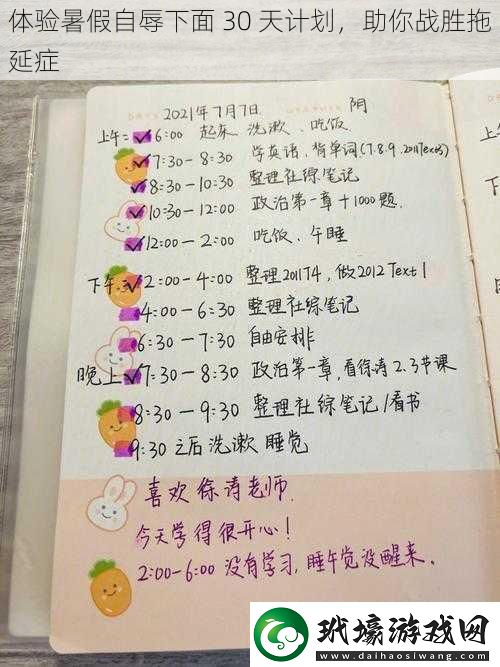 体验暑假自辱下面 30 天计划，助你战胜拖
延症
2021年7月7日 阴
上午: ✓6:00 起床 洗漱、吃饭
✓7:30-8:30 学英语,背单词(7.8.9.2011Text3)
✓8:30-10:30 整理社综笔记
✓10:30-12:00 政治第一章+1000题.
✓12:00-2:00 吃饭、午睡
下午: ✓2:00-4:00 整理2011T4,做2012 Text1
4:00-6:30 整理社综笔记
6:30-7:30 自由安排
晚上: ✓7:30-8:30 政治第一章,看徐涛2.3节课
8:30-9:30 整理社综笔记/看书
9:30 之后 洗漱 睡觉
喜欢 徐涛老师.
今天学得很开心!
2:00-6:00 没有学习,睡午觉没醒来.
玳壕游戏网
www.daihaosiwang.com